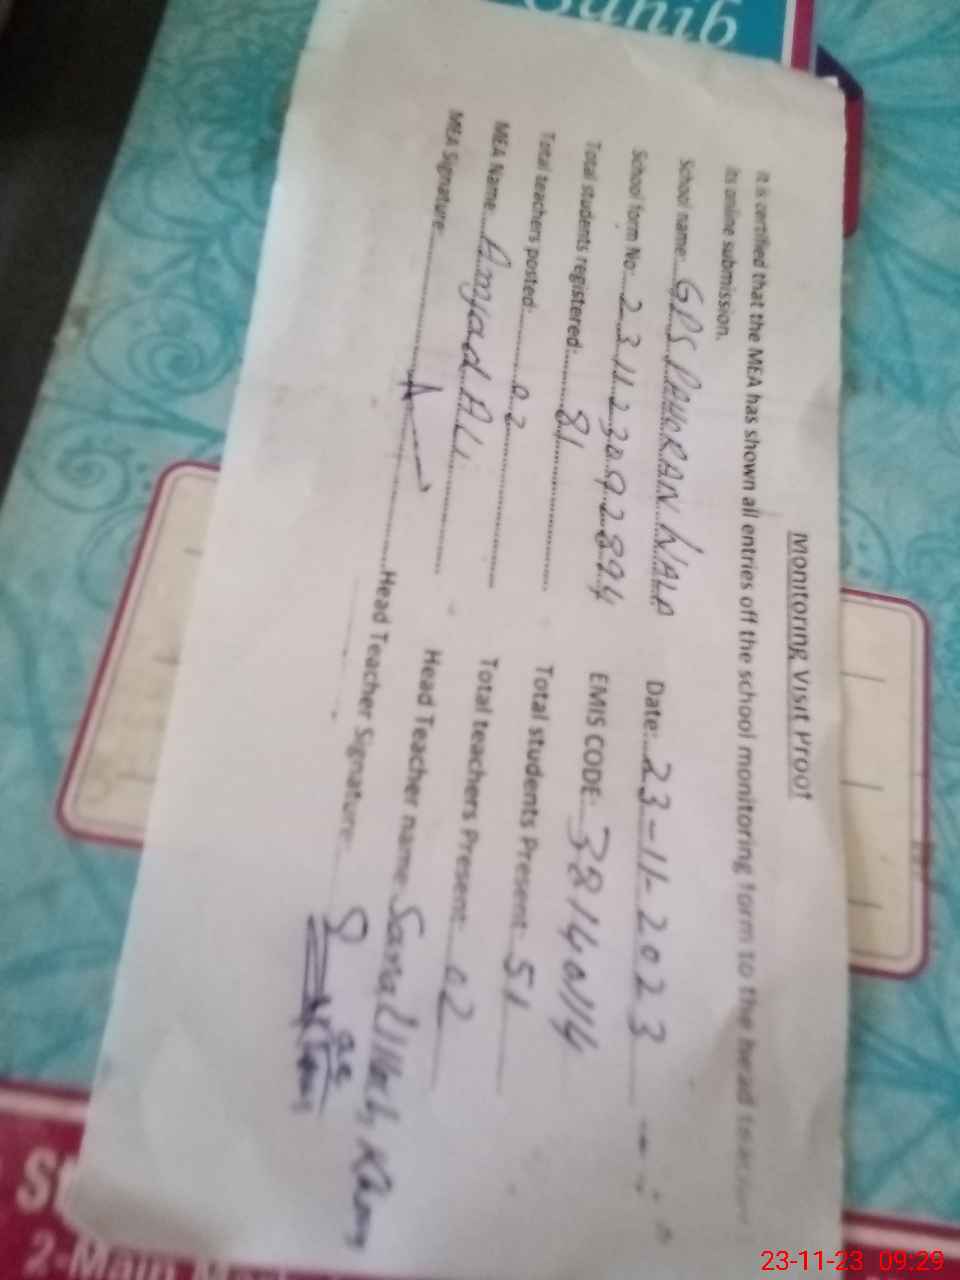 Sahib
Monitoring Visit Proof
It is certified that the MEA has shown all entries off the school monitoring form to the head teacher
its online submission.
School name: GPS PAHORAN WALA Date: 23-11-2023
School form No: 231123092894 EMIS CODE: 38140114
Total students registered: 81 Total students Present: 51
Total teachers posted: 02 Total teachers Present: 02
MEA Name: Amjad ALi Head Teacher name: Sanaullah Khan
MEA Signature: Head Teacher Signature:
St
2-Main
23-11-23 09:29